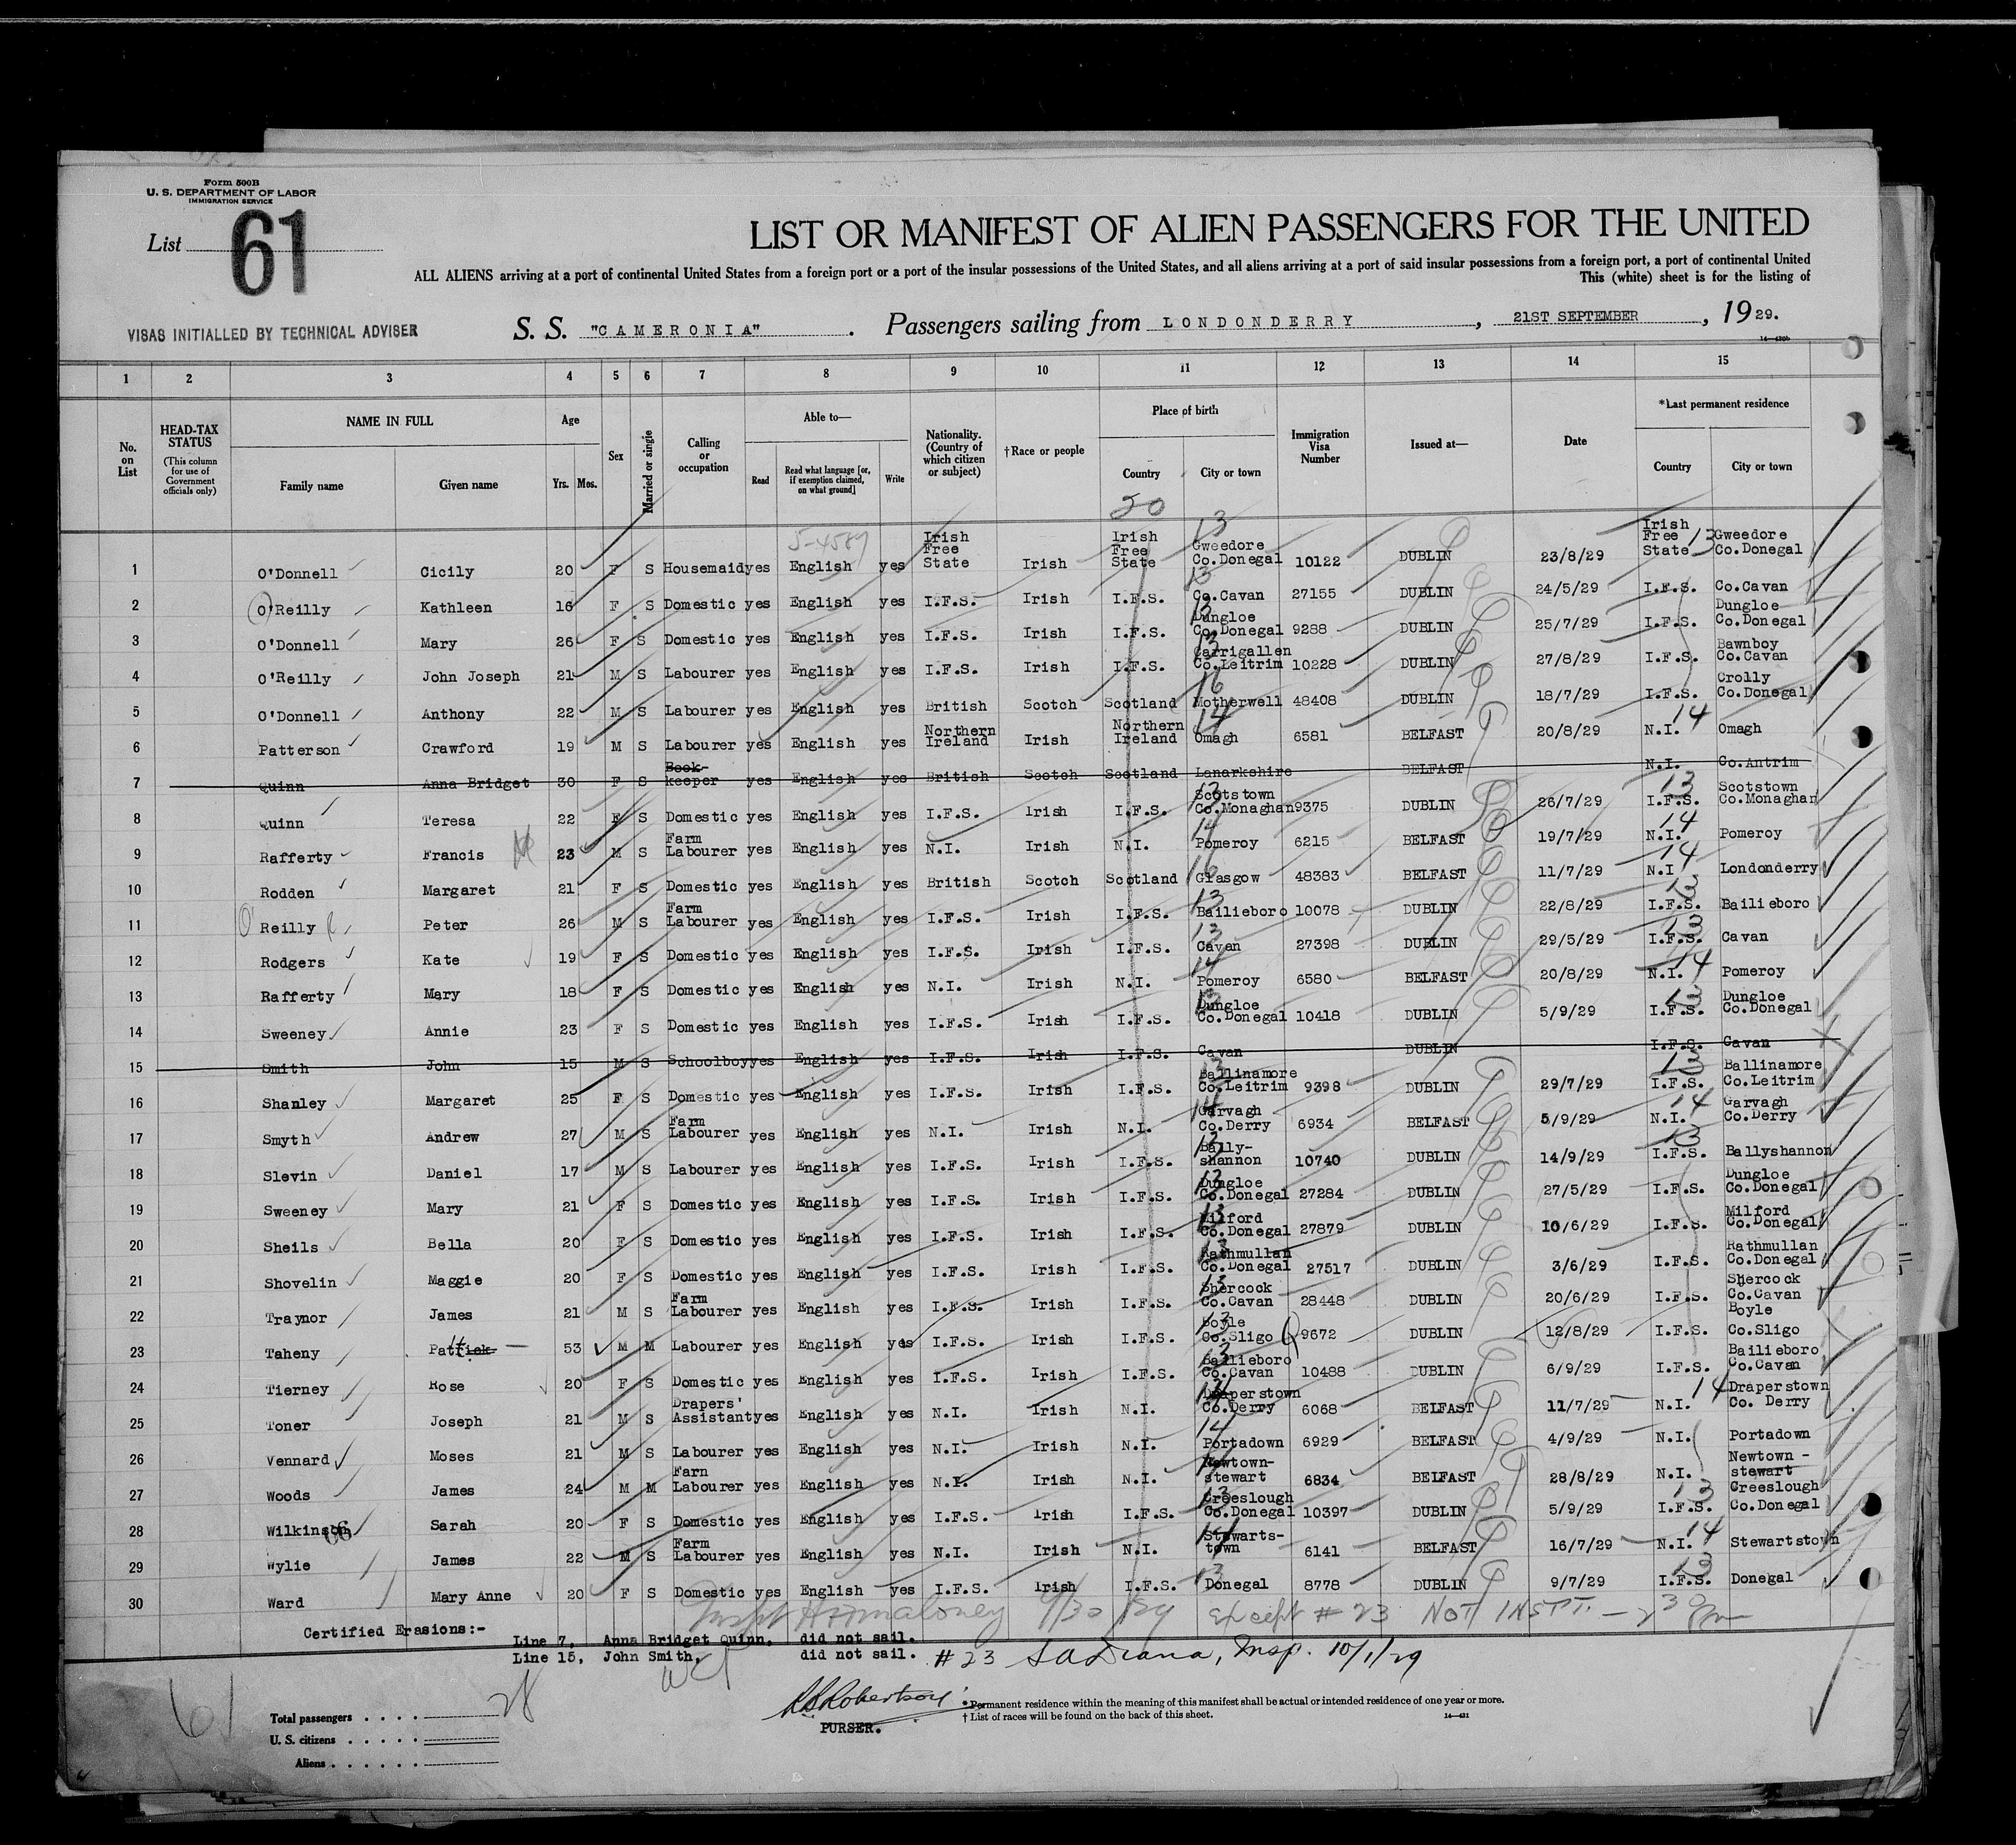 Form 500B
U. S. DEPARTMENT OF LABOR
IMMIGRATION SERVICE
List 61
LIST OR MANIFEST OF ALIEN PASSENGERS FOR THE UNITED
ALL ALIENS arriving at a port of continental United States from a foreign port or a port of the insular possessions of the United States, and all aliens arriving at a port of said insular possessions from a foreign port, a port of continental United
This (white) sheet is for the listing of
VISAS INITIALLED BY TECHNICAL ADVISER
S. S. "CAMERONIA". Passengers sailing from LONDONDERRY, 21ST SEPTEMBER, 1929.
1 2 3 4 5 6 7 8 9 10 11 12 13 14 15
No. on List
HEAD-TAX STATUS
(This column for use of Government officials only)
NAME IN FULL
Family name Given name
Age
Yrs. Mos.
Sex
Married or single
Calling or occupation
Able to—
Read
Read what language [or, if exemption claimed, on what ground]
Write
Nationality. (Country of which citizen or subject)
†Race or people
Place of birth
Country City or town
Immigration Visa Number
Issued at—
Date
*Last permanent residence
Country City or town
20
5-4587
1 O'Donnell Cicily 20 F S Housemaid yes English yes Irish Free State Irish Irish Free State 13 Gweedore Co.Donegal 10122 DUBLIN 23/8/29 Irish Free State 13 Gweedore Co.Donegal
2 O'Reilly Kathleen 16 F S Domestic yes English yes I.F.S. Irish I.F.S. 13 Co.Cavan 27155 DUBLIN 24/5/29 I.F.S. Co.Cavan
3 O'Donnell Mary 26 F S Domestic yes English yes I.F.S. Irish I.F.S. 13 Dungloe Co.Donegal 9288 DUBLIN 25/7/29 I.F.S. Dungloe Co.Donegal
4 O'Reilly John Joseph 21 M S Labourer yes English yes I.F.S. Irish I.F.S. 13 Carrigallen Co.Leitrim 10228 DUBLIN 27/8/29 I.F.S. Bawnboy Co.Cavan
5 O'Donnell Anthony 22 M S Labourer yes English yes British Scotch Scotland 16 Motherwell 48408 DUBLIN 18/7/29 I.F.S. Crolly Co.Donegal
6 Patterson Crawford 19 M S Labourer yes English yes Northern Ireland Irish Northern Ireland 14 Omagh 6581 BELFAST 20/8/29 N.I. 14 Omagh
7 Quinn Anna Bridget 30 F S Book-keeper yes English yes British Scotch Scotland Lanarkshire BELFAST N.I. Co.Antrim
8 Quinn Teresa 22 F S Domestic yes English yes I.F.S. Irish I.F.S. 13 Scotstown Co.Monaghan 9375 DUBLIN 26/7/29 13 I.F.S. Scotstown Co.Monaghan
9 Rafferty Francis 23 M S Farm Labourer yes English yes N.I. Irish N.I. 14 Pomeroy 6215 BELFAST 19/7/29 14 N.I. Pomeroy
10 Rodden Margaret 21 F S Domestic yes English yes British Scotch Scotland 16 Glasgow 48383 BELFAST 11/7/29 14 N.I Londonderry
11 O' Reilly Peter 26 M S Farm Labourer yes English yes I.F.S. Irish I.F.S. 13 Bailieboro 10078 DUBLIN 22/8/29 13 I.F.S. Bailieboro
12 Rodgers Kate 19 F S Domestic yes English yes I.F.S. Irish I.F.S. 13 Cavan 27398 DUBLIN 29/5/29 13 I.F.S. Cavan
13 Rafferty Mary 18 F S Domestic yes English yes N.I. Irish N.I. 14 Pomeroy 6580 BELFAST 20/8/29 N.I. 14 Pomeroy
14 Sweeney Annie 23 F S Domestic yes English yes I.F.S. Irish I.F.S. 13 Dungloe Co.Donegal 10418 DUBLIN 5/9/29 13 I.F.S. Dungloe Co.Donegal
15 Smith John 15 M S Schoolboy yes English yes I.F.S. Irish I.F.S. Cavan DUBLIN I.F.S. Cavan
16 Shanley Margaret 25 F S Domestic yes English yes I.F.S. Irish I.F.S. 13 Ballinamore Co.Leitrim 9398 DUBLIN 29/7/29 13 I.F.S. Ballinamore Co.Leitrim
17 Smyth Andrew 27 M S Farm Labourer yes English yes N.I. Irish N.I. 14 Garvagh Co.Derry 6934 BELFAST 5/9/29 14 N.I. Garvagh Co.Derry
18 Slevin Daniel 17 M S Labourer yes English yes I.F.S. Irish I.F.S. 13 Bally-shannon 10740 DUBLIN 14/9/29 13 I.F.S. Ballyshannon
19 Sweeney Mary 21 F S Domestic yes English yes I.F.S. Irish I.F.S. 13 Dungloe Co.Donegal 27284 DUBLIN 27/5/29 I.F.S. Dungloe Co.Donegal
20 Sheils Bella 20 F S Domestic yes English yes I.F.S. Irish I.F.S. 13 Milford Co.Donegal 27879 DUBLIN 10/6/29 I.F.S. Milford Co.Donegal
21 Shovelin Maggie 20 F S Domestic yes English yes I.F.S. Irish I.F.S. 13 Rathmullan Co.Donegal 27517 DUBLIN 3/6/29 I.F.S. Rathmullan Co.Donegal
22 Traynor James 21 M S Farm Labourer yes English yes I.F.S. Irish I.F.S. 13 Shercock Co.Cavan 28448 DUBLIN 20/6/29 I.F.S. Shercock Co.Cavan
23 Taheny Patrick 53 M M Labourer yes English yes I.F.S. Irish I.F.S. 13 Boyle Co.Sligo 9672 DUBLIN 12/8/29 I.F.S. Boyle Co.Sligo
24 Tierney Rose 20 F S Domestic yes English yes I.F.S. Irish I.F.S. 13 Bailieboro Co.Cavan 10488 DUBLIN 6/9/29 I.F.S. Bailieboro Co.Cavan
25 Toner Joseph 21 M S Drapers' Assistant yes English yes N.I. Irish N.I. 14 Draperstown Co.Derry 6068 BELFAST 11/7/29 N.I. 14 Draperstown Co. Derry
26 Vennard Moses 21 M S Labourer yes English yes N.I. Irish N.I. 14 Portadown 6929 BELFAST 4/9/29 N.I. Portadown
27 Woods James 24 M M Farn Labourer yes English yes N.I. Irish N.I. 14 Newtown-stewart 6834 BELFAST 28/8/29 N.I. Newtown-stewart
28 Wilkinson Sarah 20 F S Domestic yes English yes I.F.S. Irish I.F.S. 13 Creeslough Co.Donegal 10397 DUBLIN 5/9/29 13 I.F.S. Creeslough Co.Donegal
29 Wylie James 22 M S Farm Labourer yes English yes N.I. Irish N.I. 14 Stewarts-town 6141 BELFAST 16/7/29 N.I. 14 Stewartstown
30 Ward Mary Anne 20 F S Domestic yes English yes I.F.S. Irish I.F.S. 13 Donegal 8778 DUBLIN 9/7/29 13 I.F.S. Donegal
Maloney 9/30/29 except # 23 NOT INSPT. — 23
Certified Erasions:-
Line 7, Anna Bridget Quinn, did not sail.
Line 15, John Smith, did not sail.
# 23 Insp. 10/1/29
61
Total passengers 28
U. S. citizens
Aliens
Robertson
PURSER.
*Permanent residence within the meaning of this manifest shall be actual or intended residence of one year or more.
† List of races will be found on the back of this sheet.